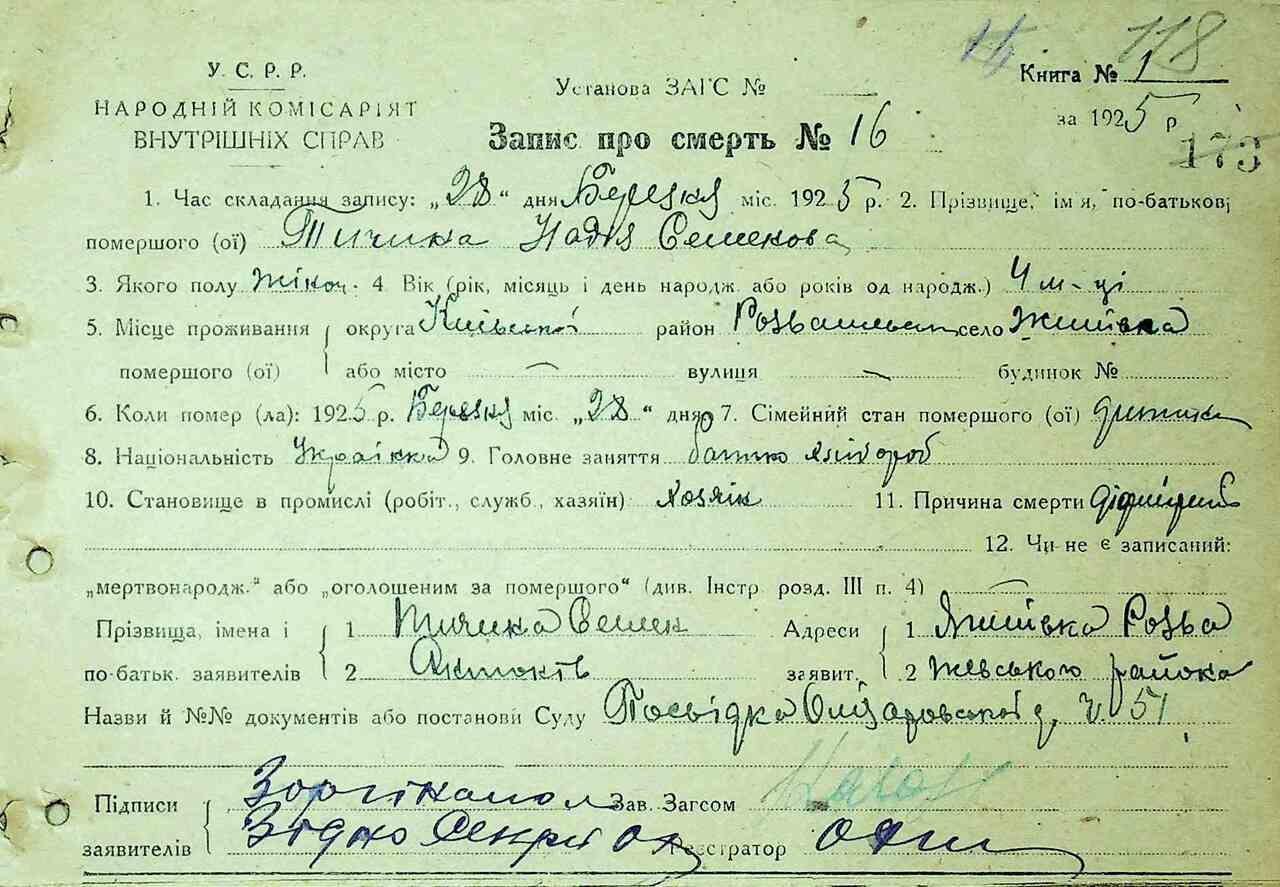 118
У. С. Р. Р.
НАРОДНІЙ КОМІСАРІЯТ
ВНУТРІШНІХ СПРАВ
Установа ЗАГС №
Книга № 1
за 1925 р
173
Запис про смерть № 16
1. Час складання запису: „28“ дня Березня міс. 1925 р. 2. Прізвище, ім я, по-батькові
помершого (ої) Тичина Надія Семенова
3. Якого полу жіноч. 4 Вік (рік, місяць і день народж. або років од народж.) 4 м-ці
5. Місце проживання округа Київської район Розважевськ село Жміївка
помершого (ої) або місто — вулиця — будинок №
6. Коли помер (ла): 1925 р. Березня міс. „28“ дня 7. Сімейний стан помершого (ої) дитина
8. Національність Українка 9. Головне заняття батько хлібороб
10. Становище в промислі (робіт., служб., хазяїн) Хозяїн 11. Причина смерти
12. Чи не є записаний:
„мертвонародж.“ або „оголошеним за помершого“ (див. Інстр розд. III п. 4) —
Прізвища, імена і 1 Тичина Семен Адреси 1 Жміївка Розва
по-батьк. заявителів 2 Антонів заявит. 2 жевського района
Назви й №№ документів або постанови Суду Посвідка Олізаровської ч. 51
Підписи Зав. Загсом
заявителів Згідно Секретар Реєстратор